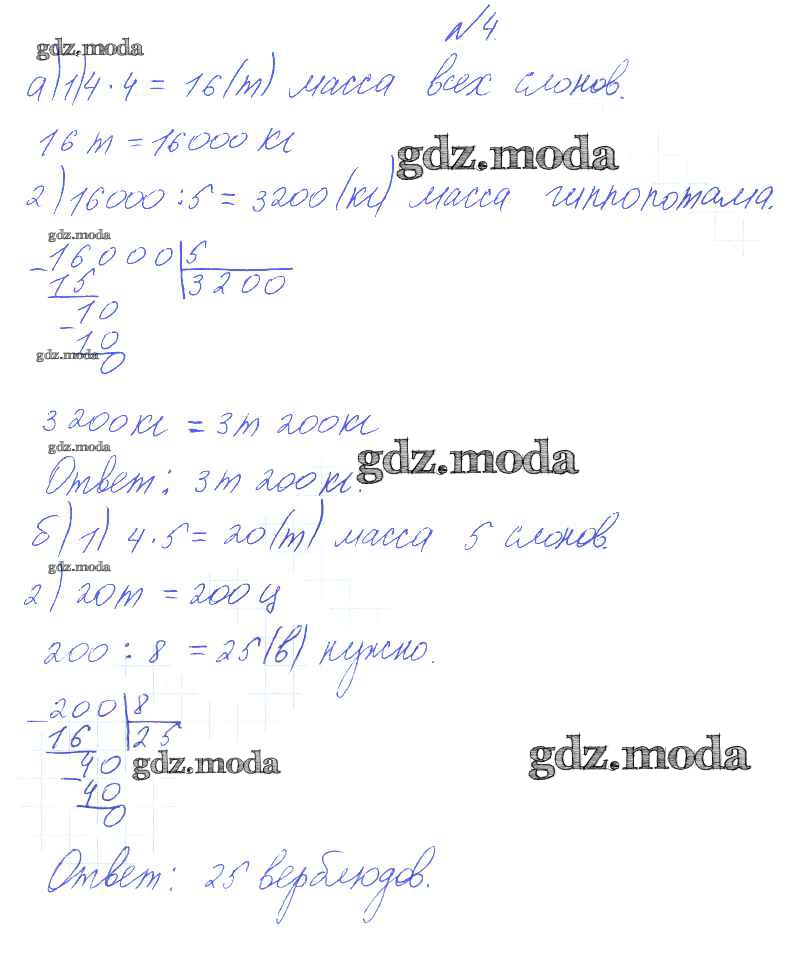 №4.
gdz.moda
а) 1) 4 · 4 = 16 (т) масса всех слонов.
16 т = 16000 кг
gdz.moda
2) 16000 : 5 = 3200 (кг) масса гиппопотама.
gdz.moda
16000 5
- 15 3200
10
- 10
gdz.moda
0
3200 кг = 3 т 200 кг
gdz.moda
gdz.moda
Ответ: 3 т 200 кг.
б) 1) 4 · 5 = 20 (т) масса 5 слонов.
gdz.moda
2) 20 т = 200 ц
200 : 8 = 25 (в) нужно.
- 200 8
16 25
- 40
gdz.moda
gdz.moda
40
0
Ответ: 25 верблюдов.